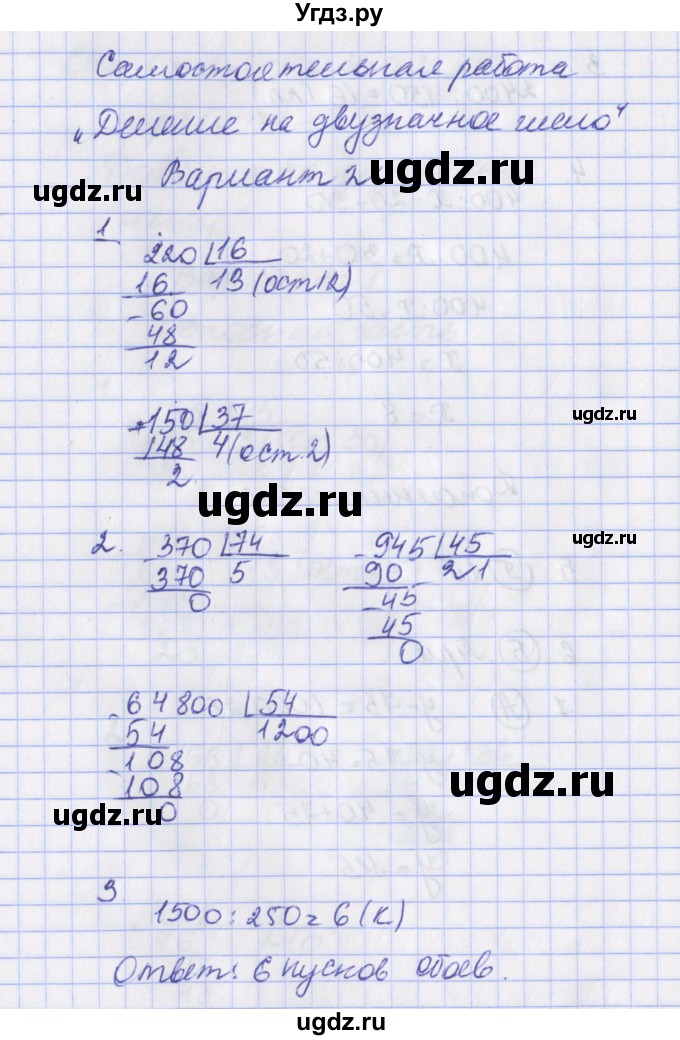 Угдз.ру
Самостоятельная работа
„Деление на двузначное число"
ugdz.ru
Вариант 2
ugdz.ru
1
220 16
16 13 (ост 12)
- 60
48
12
- 150 37
148 4 (ост. 2)
2
ugdz.ru
ugdz.ru
2. 370 74
370 5
0
- 945 45
90 21
- 45
45
0
ugdz.ru
- 64800 54
54 1200
- 108
108
0
ugdz.ru
ugdz.ru
3
1500 : 250 = 6 (к)
Ответ: 6 кусков обоев.
ugdz.ru